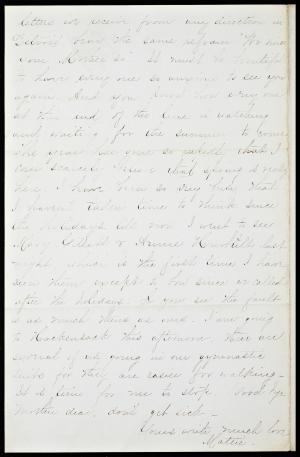 letters we receive from any direction in
Detroit bear the same refrain "We miss
your Mother so" It must be beautiful
to have every one so anxious to see you
again. And you know how every one
at this end of the line is watching
and waiting for the summer to come.
The year has gone so rapidly that I
can scarcely believe that spring is really
here. I have been so very busy that
I haven't taken time to think since
the holidays till now I went to see
Mary & Annie last
night which is the first time I have
seen them except to bow since we called
after the holidays. So you see the fault
is as much theirs as ours. I am going
to Hackensack this afternoon. There are
several of us going in our gymnastic
suits for they are easier for walking -
It is time for me to stop. Good bye
Mother dear, don't get sick -
Yours with much love
Mattie.